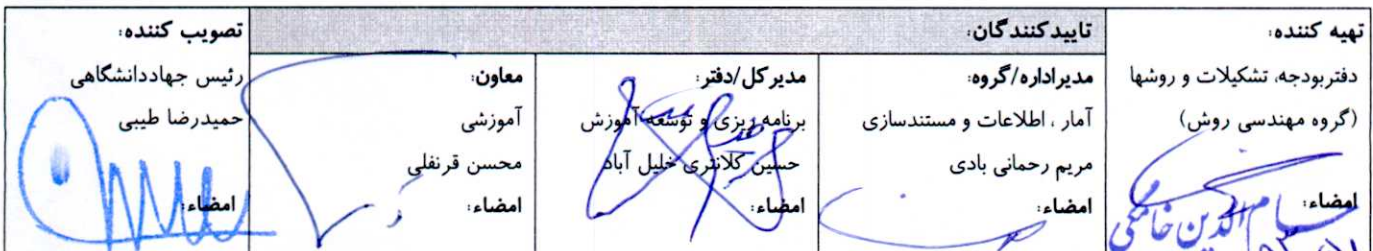 تهیه کننده:
دفتربودجه، تشکیلات و روشها
(گروه مهندسی روش)
امضاء:
تاییدکنندگان:
مدیراداره/گروه:
آمار ، اطلاعات و مستندسازی
مریم رحمانی بادی
امضاء:
مدیرکل/دفتر:
برنامه ریزی و توسعه آموزش
حسین کلانتری خلیل آباد
امضاء:
معاون:
آموزشی
محسن قرنفلی
امضاء:
تصویب کننده:
رئیس جهاددانشگاهی
حمیدرضا طیبی
امضاء: